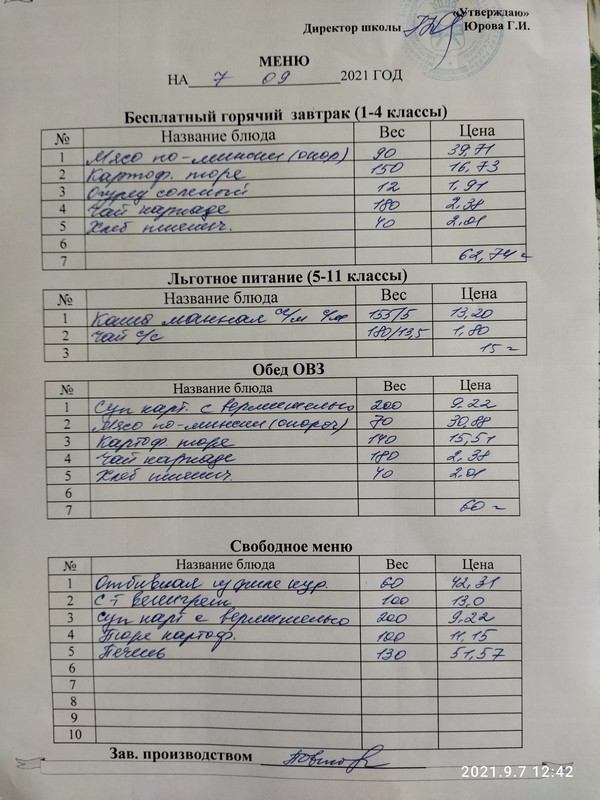 «Утверждаю»
Директор школы Юрова Г.И.
МЕНЮ
НА 7 09 2021 ГОД
Бесплатный горячий завтрак (1-4 классы)
№ Название блюда Вес Цена
1 Мясо по-мински (окор) 90 39,71
2 Картоф. пюре 150 16,73
3 Огурец соленый 12 1,91
4 Чай каркаде 180 2,38
5 Хлеб пшенич. 40 2,01
6
7 62,74
Льготное питание (5-11 классы)
№ Название блюда Вес Цена
1 Каша манная с/м 155/5 13,20
2 Чай с/с 180/13,5 1,80
3 15
Обед ОВЗ
№ Название блюда Вес Цена
1 Суп карт. с вермишелью 200 9,22
2 Мясо по-мински 70 30,88
3 Картоф пюре 140 15,51
4 Чай каркаде 180 2,38
5 Хлеб пшенич. 40 2,01
6
7 60
Свободное меню
№ Название блюда Вес Цена
1 Отбивная из филе кур. 60 42,31
2 С-т винегрет 100 13,0
3 Суп карт с вермишелью 200 9,22
4 Пюре картоф. 100 11,15
5 Печень 130 51,57
6
7
8
9
10
Зав. производством
2021.9.7 12:42